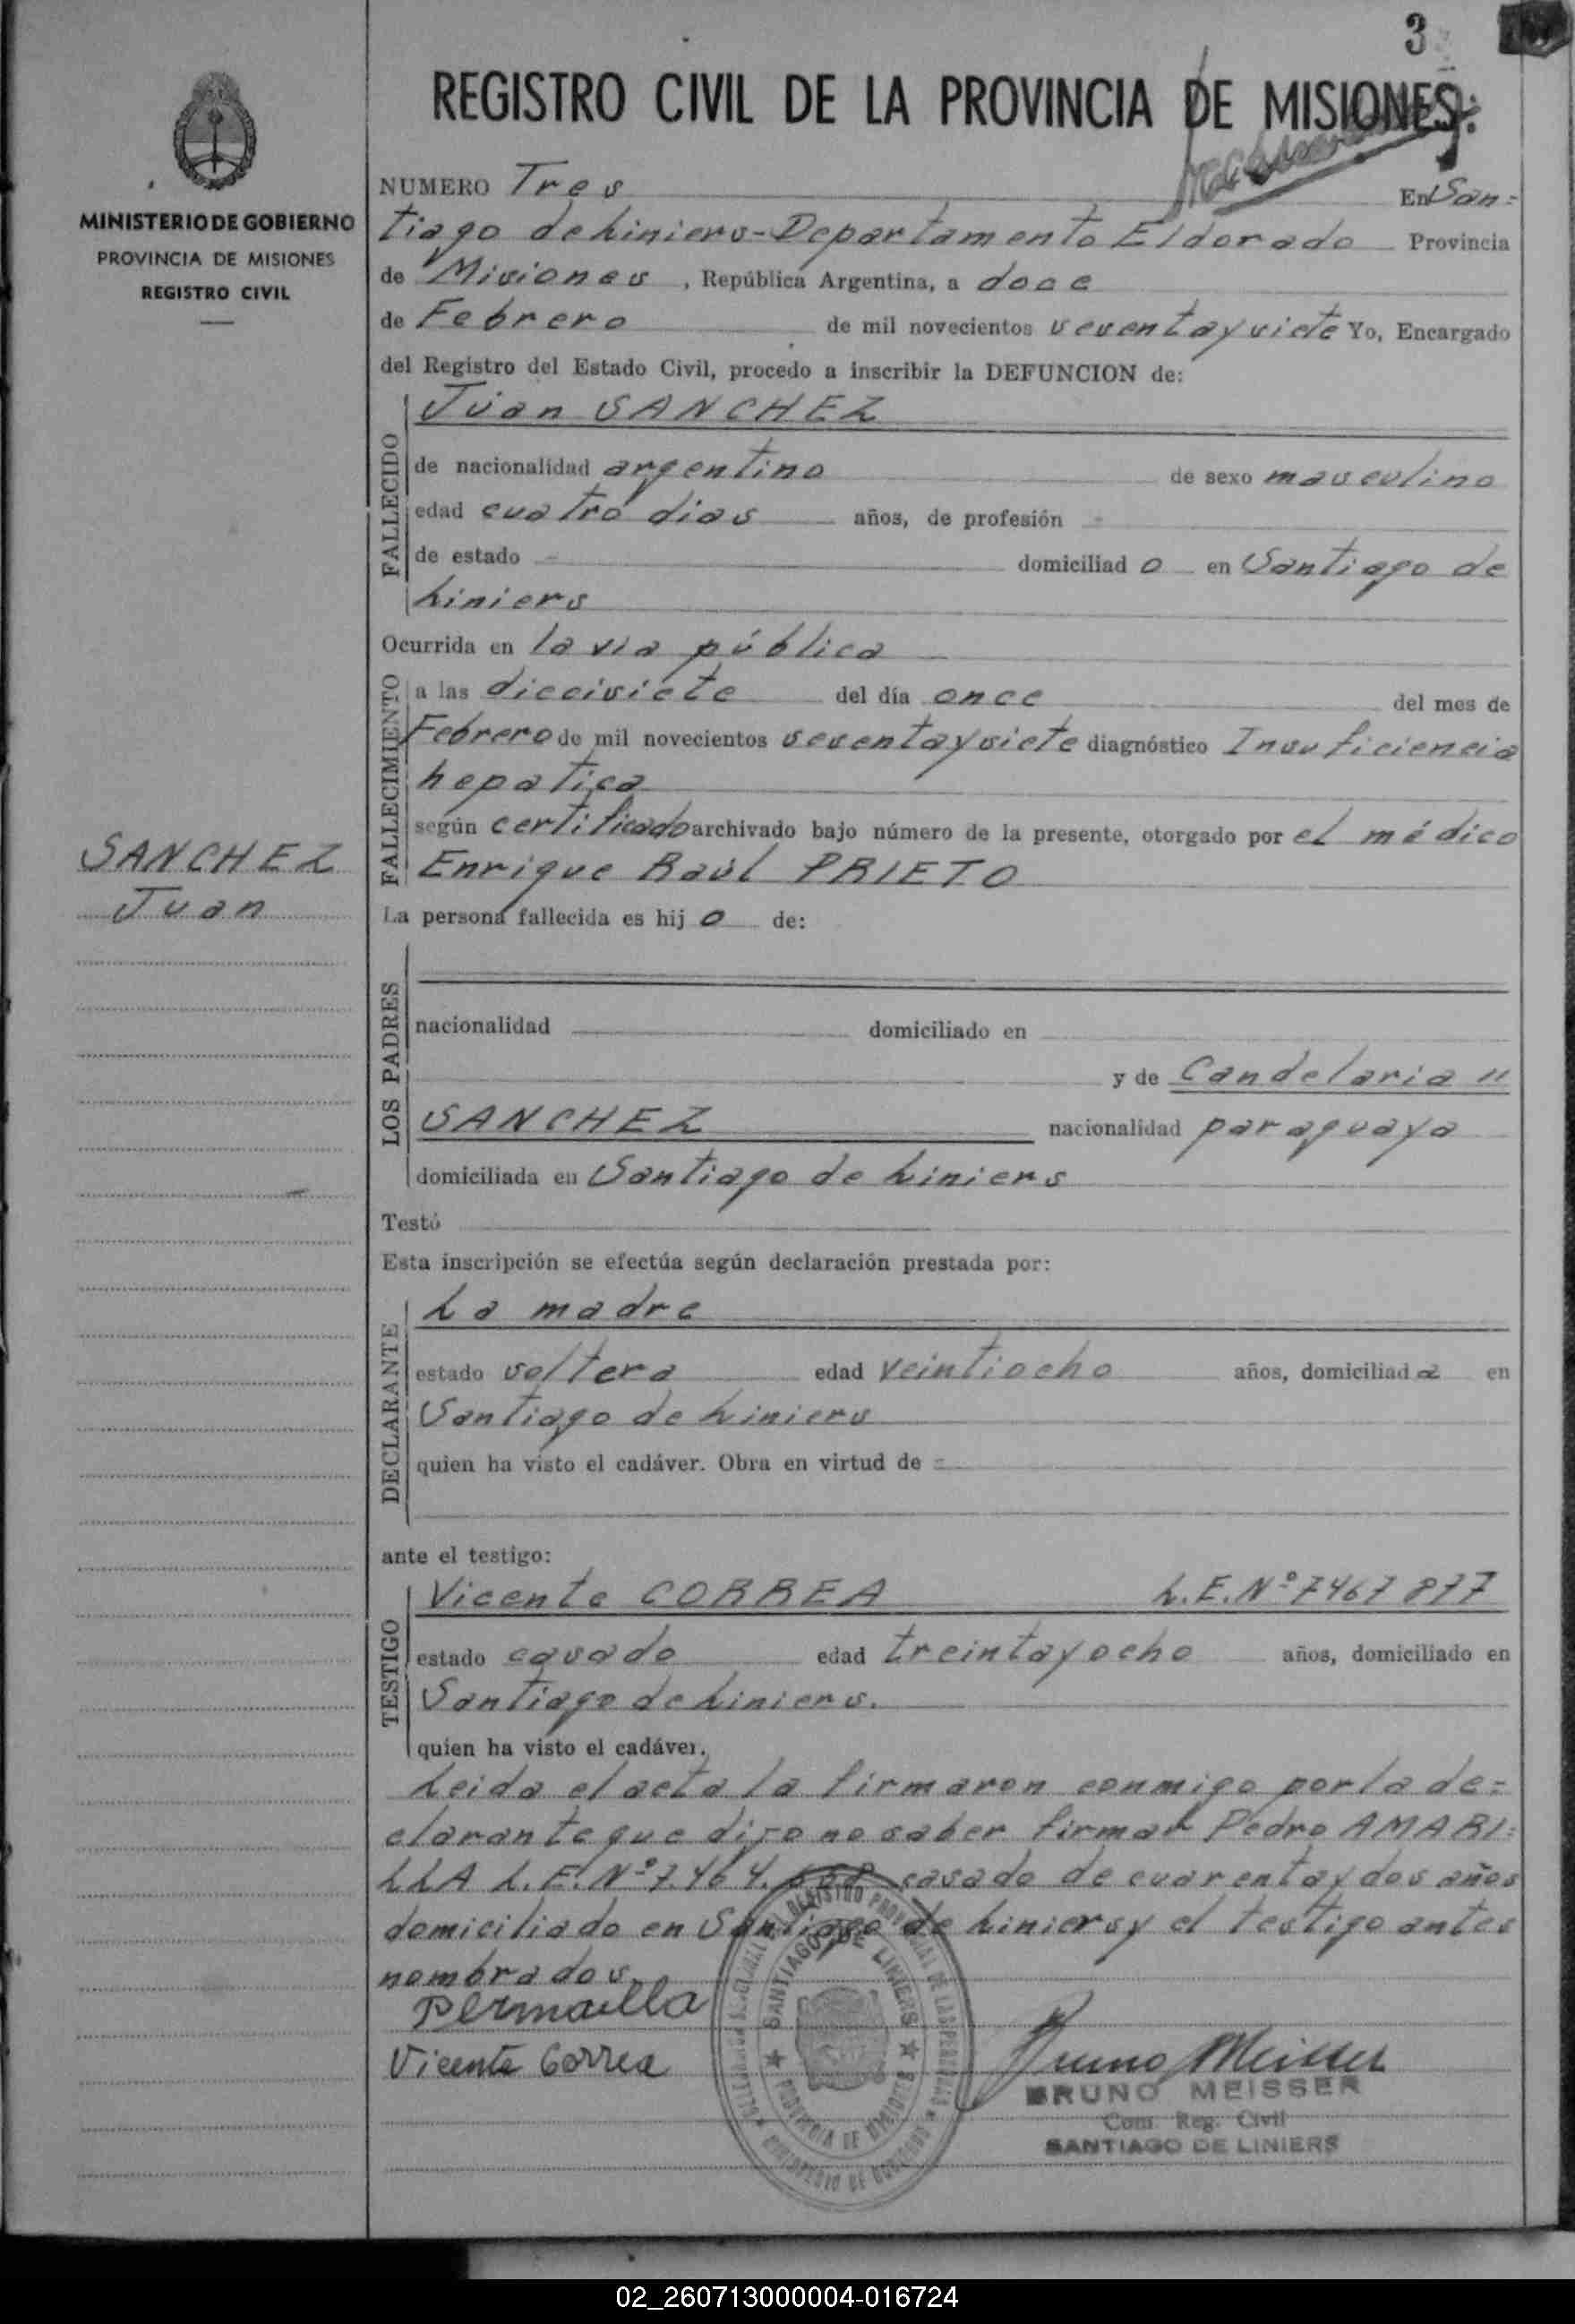 3
REGISTRO CIVIL DE LA PROVINCIA DE MISIONES
MINISTERIO DE GOBIERNO
PROVINCIA DE MISIONES
REGISTRO CIVIL
SANCHEZ
Juan
NUMERO Tres En San=
tiago de Liniers-Departamento Eldorado Provincia
de Misiones, República Argentina, a doce
de Febrero de mil novecientos sesentaysiete Yo, Encargado
del Registro del Estado Civil, procedo a inscribir la DEFUNCION de:
FALLECIDO
Juan SANCHEZ
de nacionalidad argentino de sexo masculino
edad cuatro dias años, de profesión -
de estado - domiciliad o en Santiago de
Liniers
Ocurrida en la via pública
FALLECIMIENTO
a las diecisiete del día once del mes de
Febrero de mil novecientos sesentaysiete diagnóstico Insuficiencia
hepatica
según certificado archivado bajo número de la presente, otorgado por el médico
Enrique Raúl PRIETO
La persona fallecida es hij o de:
LOS PADRES
nacionalidad domiciliado en
y de Candelaria "
SANCHEZ nacionalidad paraguaya
domiciliada en Santiago de Liniers
Testó
Esta inscripción se efectúa según declaración prestada por:
DECLARANTE
La madre
estado soltera edad veintiocho años, domiciliad a en
Santiago de Liniers
quien ha visto el cadáver. Obra en virtud de =
ante el testigo:
TESTIGO
Vicente CORREA L.E.Nº 7467 877
estado casado edad treintayocho años, domiciliado en
Santiago de Liniers.
quien ha visto el cadáver.
Leida el acta la firmaron conmigo por la de=
clarante que dijo no saber firmar Pedro AMARI=
LLA L.E.Nº 7.464. casado de cuarentaydos años
domiciliado en Santiago de Liniers y el testigo antes
nombrados.
Vicente Correa
Bruno Meisser
BRUNO MEISSER
Com. Reg. Civil
SANTIAGO DE LINIERS
SANTIAGO DE LINIERS
PROVINCIA DE MISIONES
02_260713000004-016724